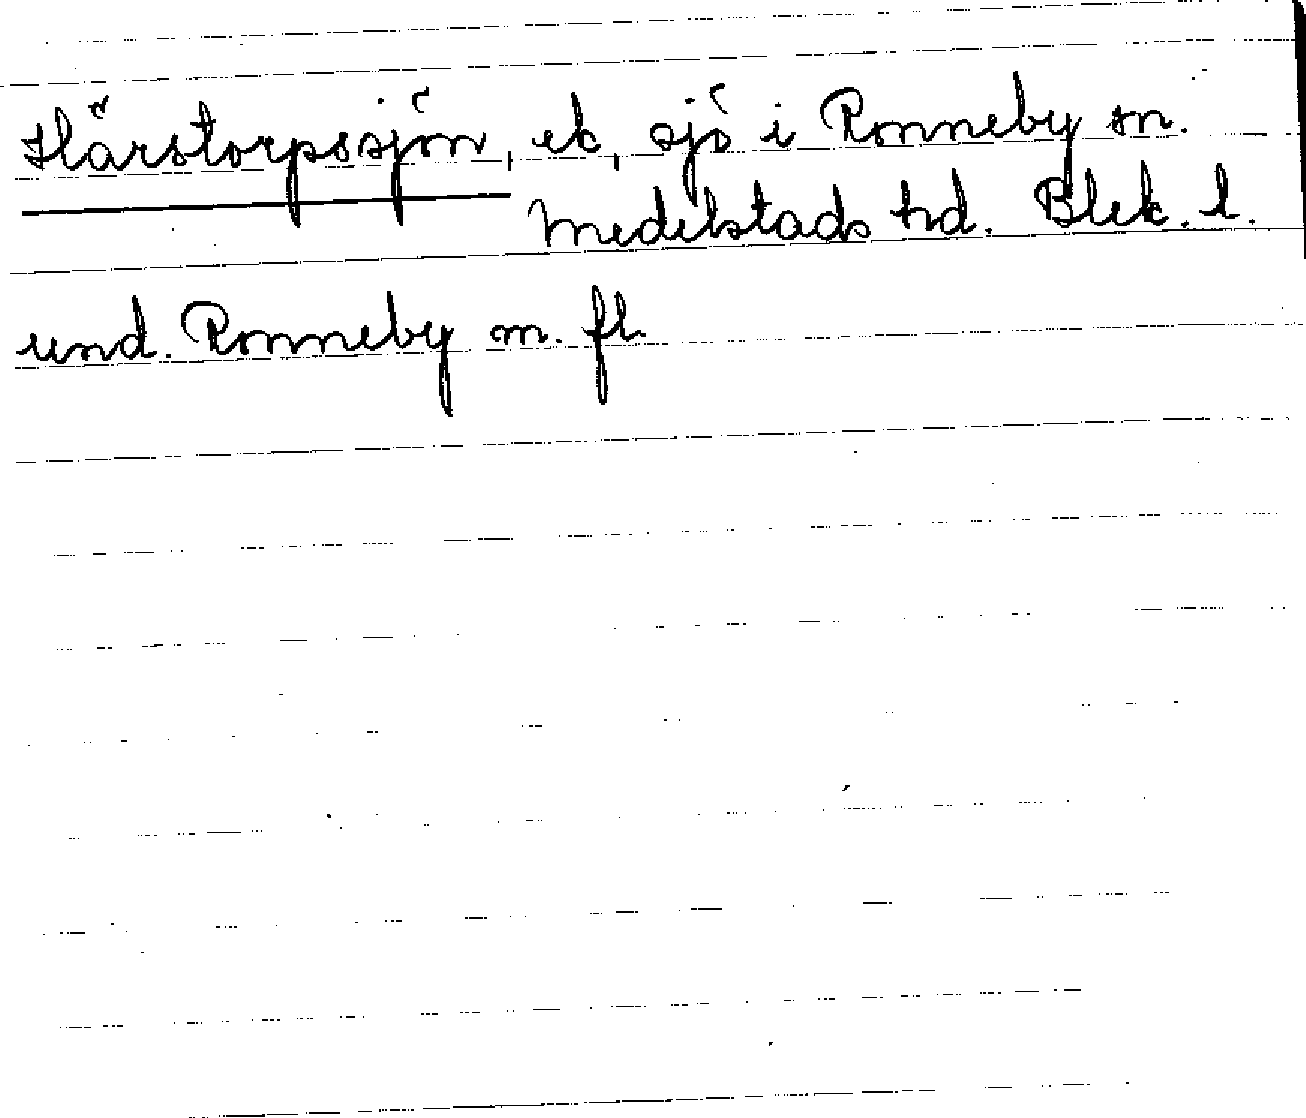 Härstorpssjön, ek, sjö i Ronneby sn.
Medelstads hd. Blek. l.
und. Ronneby m. fl.